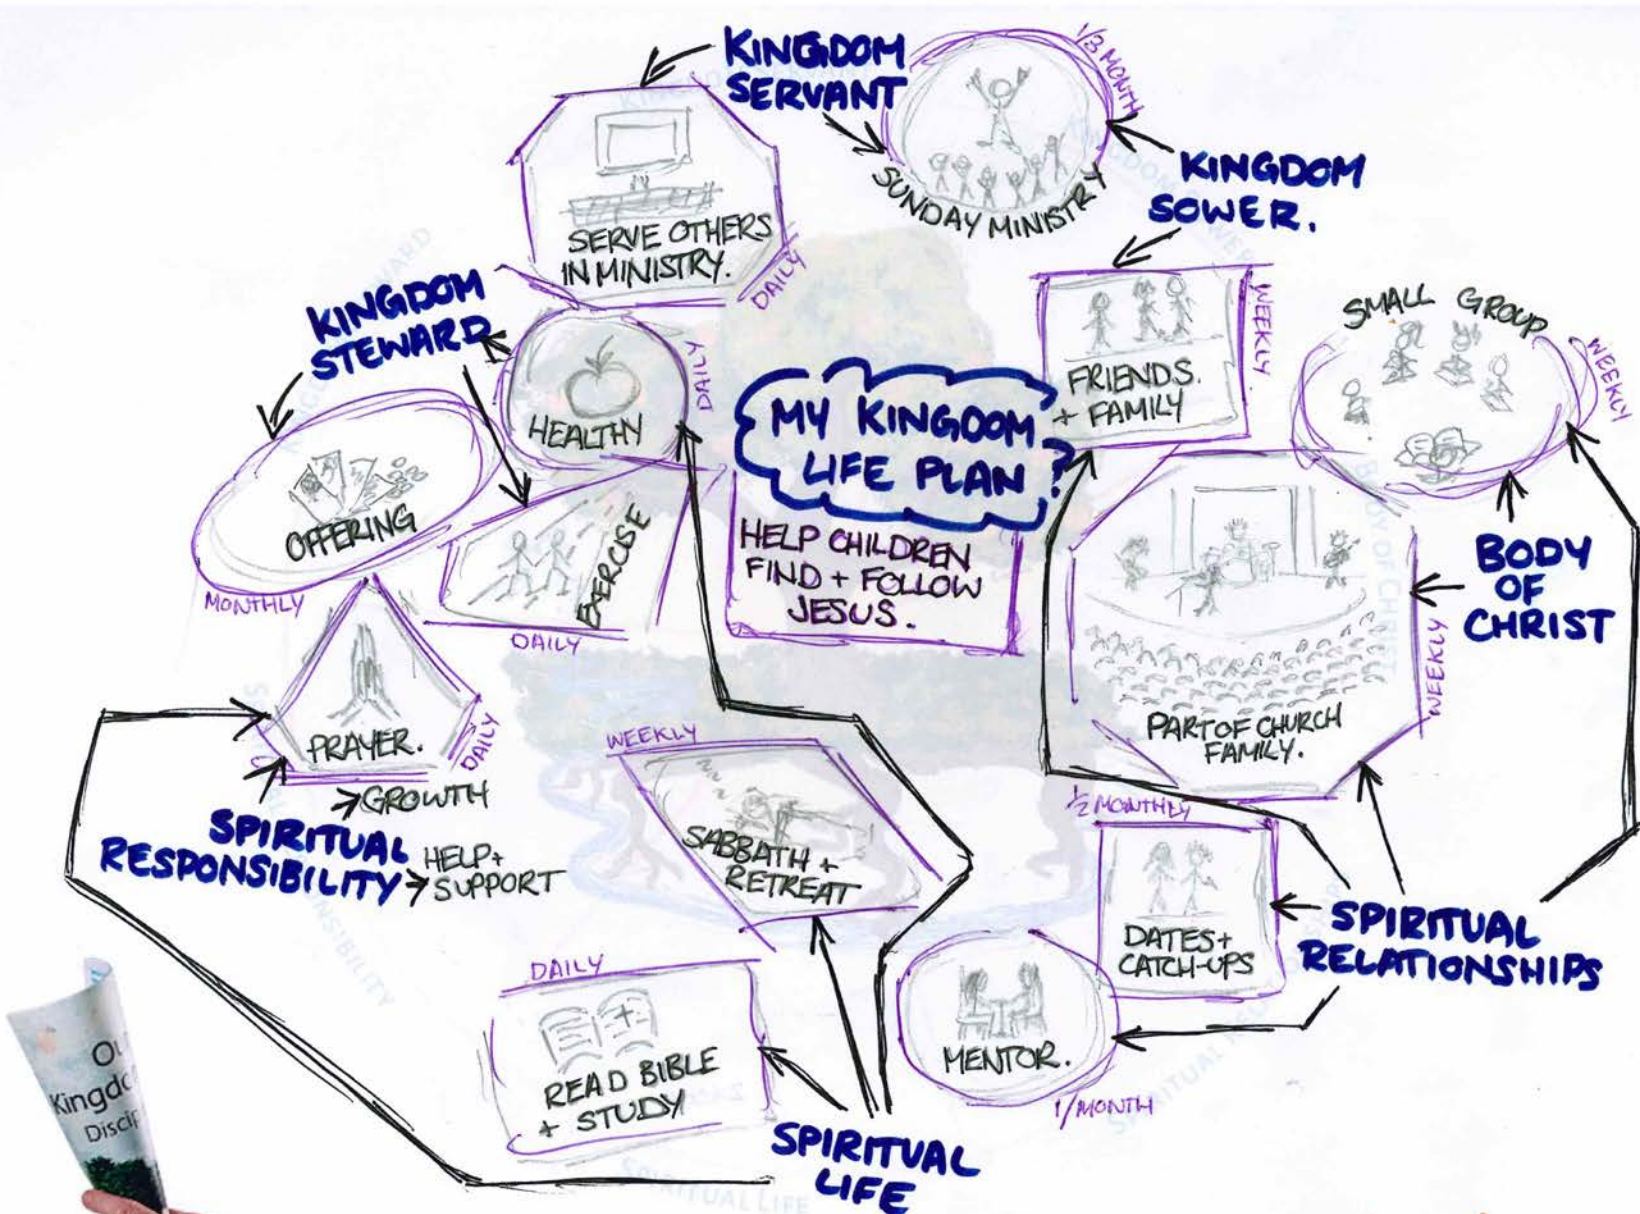 KINGDOM
SERVANT
1/3 MONTH
SUNDAY MINISTRY
KINGDOM
SOWER.
SERVE OTHERS
IN MINISTRY.
DAILY
KINGDOM
STEWARD
HEALTHY
DAILY
FRIENDS.
+ FAMILY
WEEKLY
SMALL GROUP
WEEKLY
MY KINGDOM
LIFE PLAN?
HELP CHILDREN
FIND + FOLLOW
JESUS.
OFFERING
MONTHLY
EXERCISE
DAILY
BODY
OF
CHRIST
PART OF CHURCH
FAMILY.
WEEKLY
PRAYER.
DAILY
→GROWTH
SPIRITUAL
RESPONSIBILITY
→HELP+
SUPPORT
WEEKLY
SABBATH +
RETREAT
1/2 MONTHLY
DATES+
CATCH-UPS
SPIRITUAL
RELATIONSHIPS
MENTOR.
1/MONTH
DAILY
READ BIBLE
+ STUDY
SPIRITUAL
LIFE
SPIRITUAL LIFE
BODY OF CHRIST